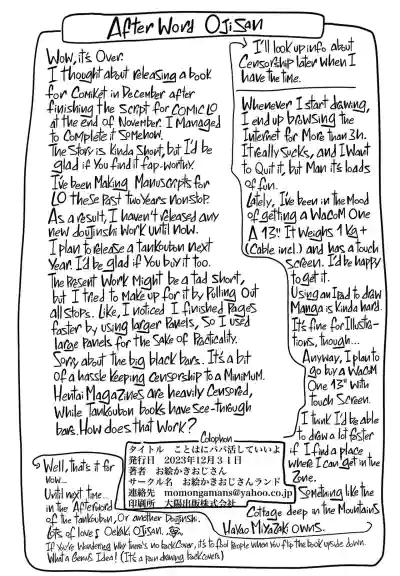 After Word Ojisan
Wow, it's Over.
I thought about releasing a book
for Comiket in December after
finishing the Script for COMIC LO
at the end of November. I Managed
to Complete it Somehow.
The Story is Kinda Short, but I'd be
glad if You find it fap-worthy.
I've been Making Manuscripts for
LO these Past two Years nonstop.
As a result, I haven't released any
new doujinshi Work until now.
I plan to release a tankoubon next
Year. I'd be glad if You buy it too.
The Present Work Might be a tad Short,
but I tried to Make up for it by Pulling Out
all Stops. Like, I noticed I finished Pages
faster by using larger Panels, So I used
large Panels for the Sake of Practicality.
Sorry about the big black bars. It's a bit
of a hassle Keeping Censorship to a Minimum.
Hentai Magazines are heavily Censored,
While Tankoubon books have See-through
bars. How does that Work?
I'll look up info about
Censorship later when I
have the time.
Whenever I start drawing,
I end up browsing the
Internet for More than 3h.
It really Sucks, and I Want
to Quit it, but Man its loads
of fun.
Lately, I've been in the Mood
of getting a Wacom One
A 13" It Weighs 1 Kg+
(Cable incl.) and has a touch
Screen. I'd be happy
to get it.
Using an Ipad to draw
Manga is Kinda hard.
It's fine for Illustra-
tions, though...
Anyway, I plan to
go buy a Wacom
One 13" with
touch Screen.
I think I'd be able
to draw a lot faster
if I find a place
where I can get in the
Zone.
Something like the
Cottage deep in the Mountains
Hayao Miyazaki owns.
Colophon
タイトル ことはにパパ活していいよ
発行日 2023年12月31日
著者 お絵かきおじさん
サークル名 お絵かきおじさんランド
連絡先 momongamans@yahoo.co.jp
印刷所 大陽出版株式会社
Well, that's it for
now...
Until next time...
in the Afterword
of the tankoubun, Or another Doujinshi.
Lots of love: Oekaki Ojisan.
If You're Wondering Why there's no back Cover, it's to fool People when You flip the book upside down.
What a Genius Idea! (It's a pain drawing back covers)